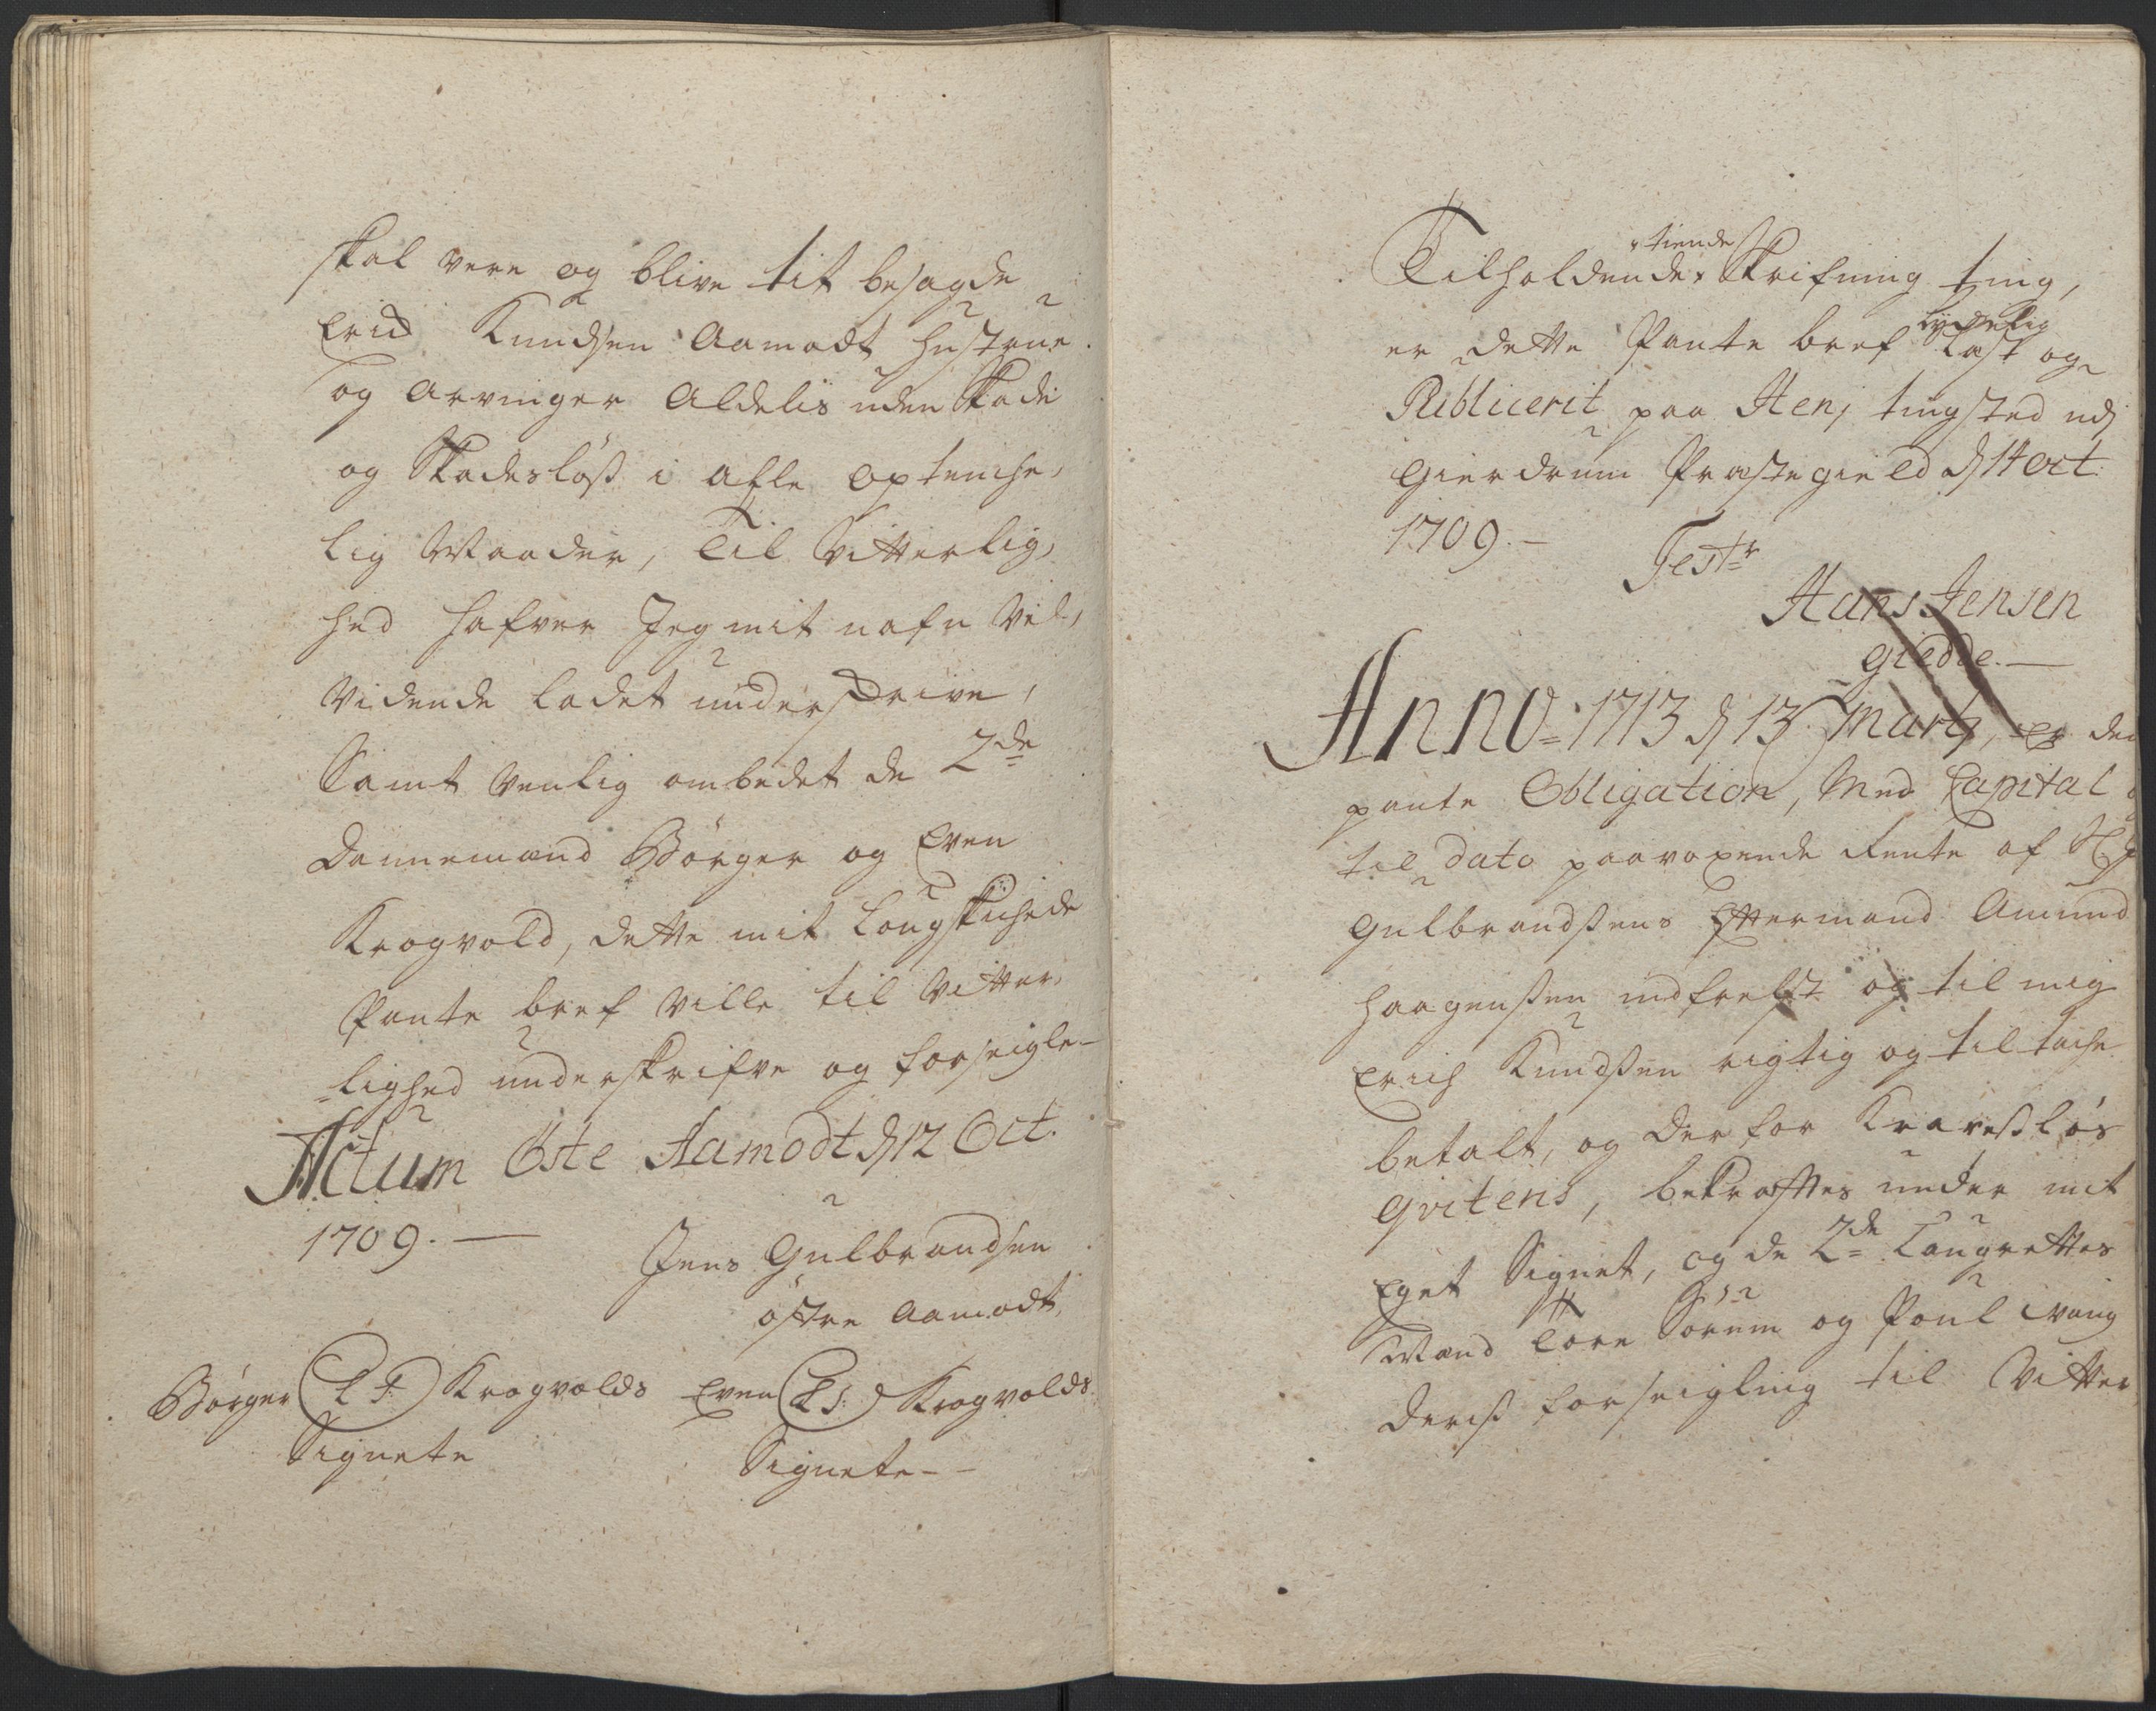 skal vere og blive tit besagde
Erich Knudsen Aamodt Hustrue
og Arvinger Aldelis uden Skade
og Skadesløß i alle optenche,
lig Maader, Til Vitterlig,
hed hafver Jeg mit nafn Vel,
Vidende ladet underskrive,
Samt venlig ombedet de 2de
Dannemænd Børger og Even
Krogvold, dette mit Lougskichede
Pante bref ville til Vitter,
-lighed underskrifve og forseigle-
Actum Öste Aamodt d 12 Oct.
1709.—
Jens Gulbrandsen
østre Aamodt,
Børger (L S.) Krogvolds Even (L S.) Krogvolds
Signete Signete--
Tilholdende, stiende Skrifning ting,
er dette Pante bref lydelig Læst og
Publicerit paa Henj tingsted udj
Gierdrum Præstegield d 14 Oct.
1709.—
Test:
Hans Jensen
Giedde.—
Anno 1713 d 13 Marty, er den
pante Obligation, Med Capital
til dato paavoxende Rente af
Gulbrandßens Eftermand Amund
Haagenßen indfrelst og til mig
Erich Knudßen rigtig og til tache
betalt, og derfor Kraveßløs
qvitens, bekræftes under mit
Eget Signet, og de 2de Laugrettes
Mænd Tore Sørum og Poul Wang
Deriß forseigling til Vitter